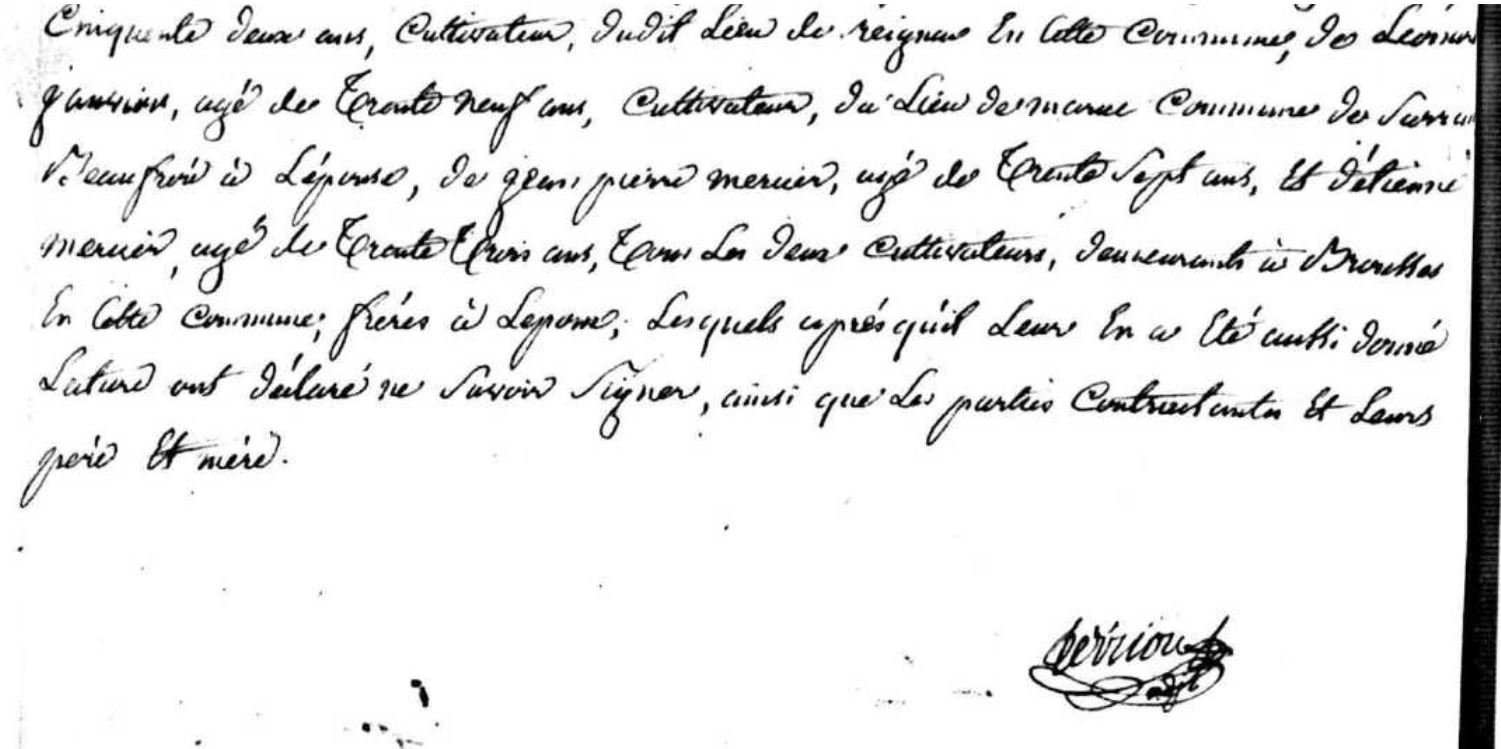 Cinquante deux ans, Cultivateur, dudit Lieu de reigneu En Cette Commune, de Léonard
age de Trente neuf ans, Cultivateur, du Lieu de Commune de
Beaufrere à Lépouse, de jean pierre mercier, agé de Trente Sept ans, Et d'étienne
mercier, agé de Trente Trois ans, Tous Les deux Cultivateurs, demeurants à Brousses
En Cette Commune, freres à Lepouse, Lesquels après qu'il Leur En a Eté aussi donné
Lecture ont déclaré ne Savoir Signer, ainsi que Les parties Contractantes Et Leurs
père Et mère.
adjt